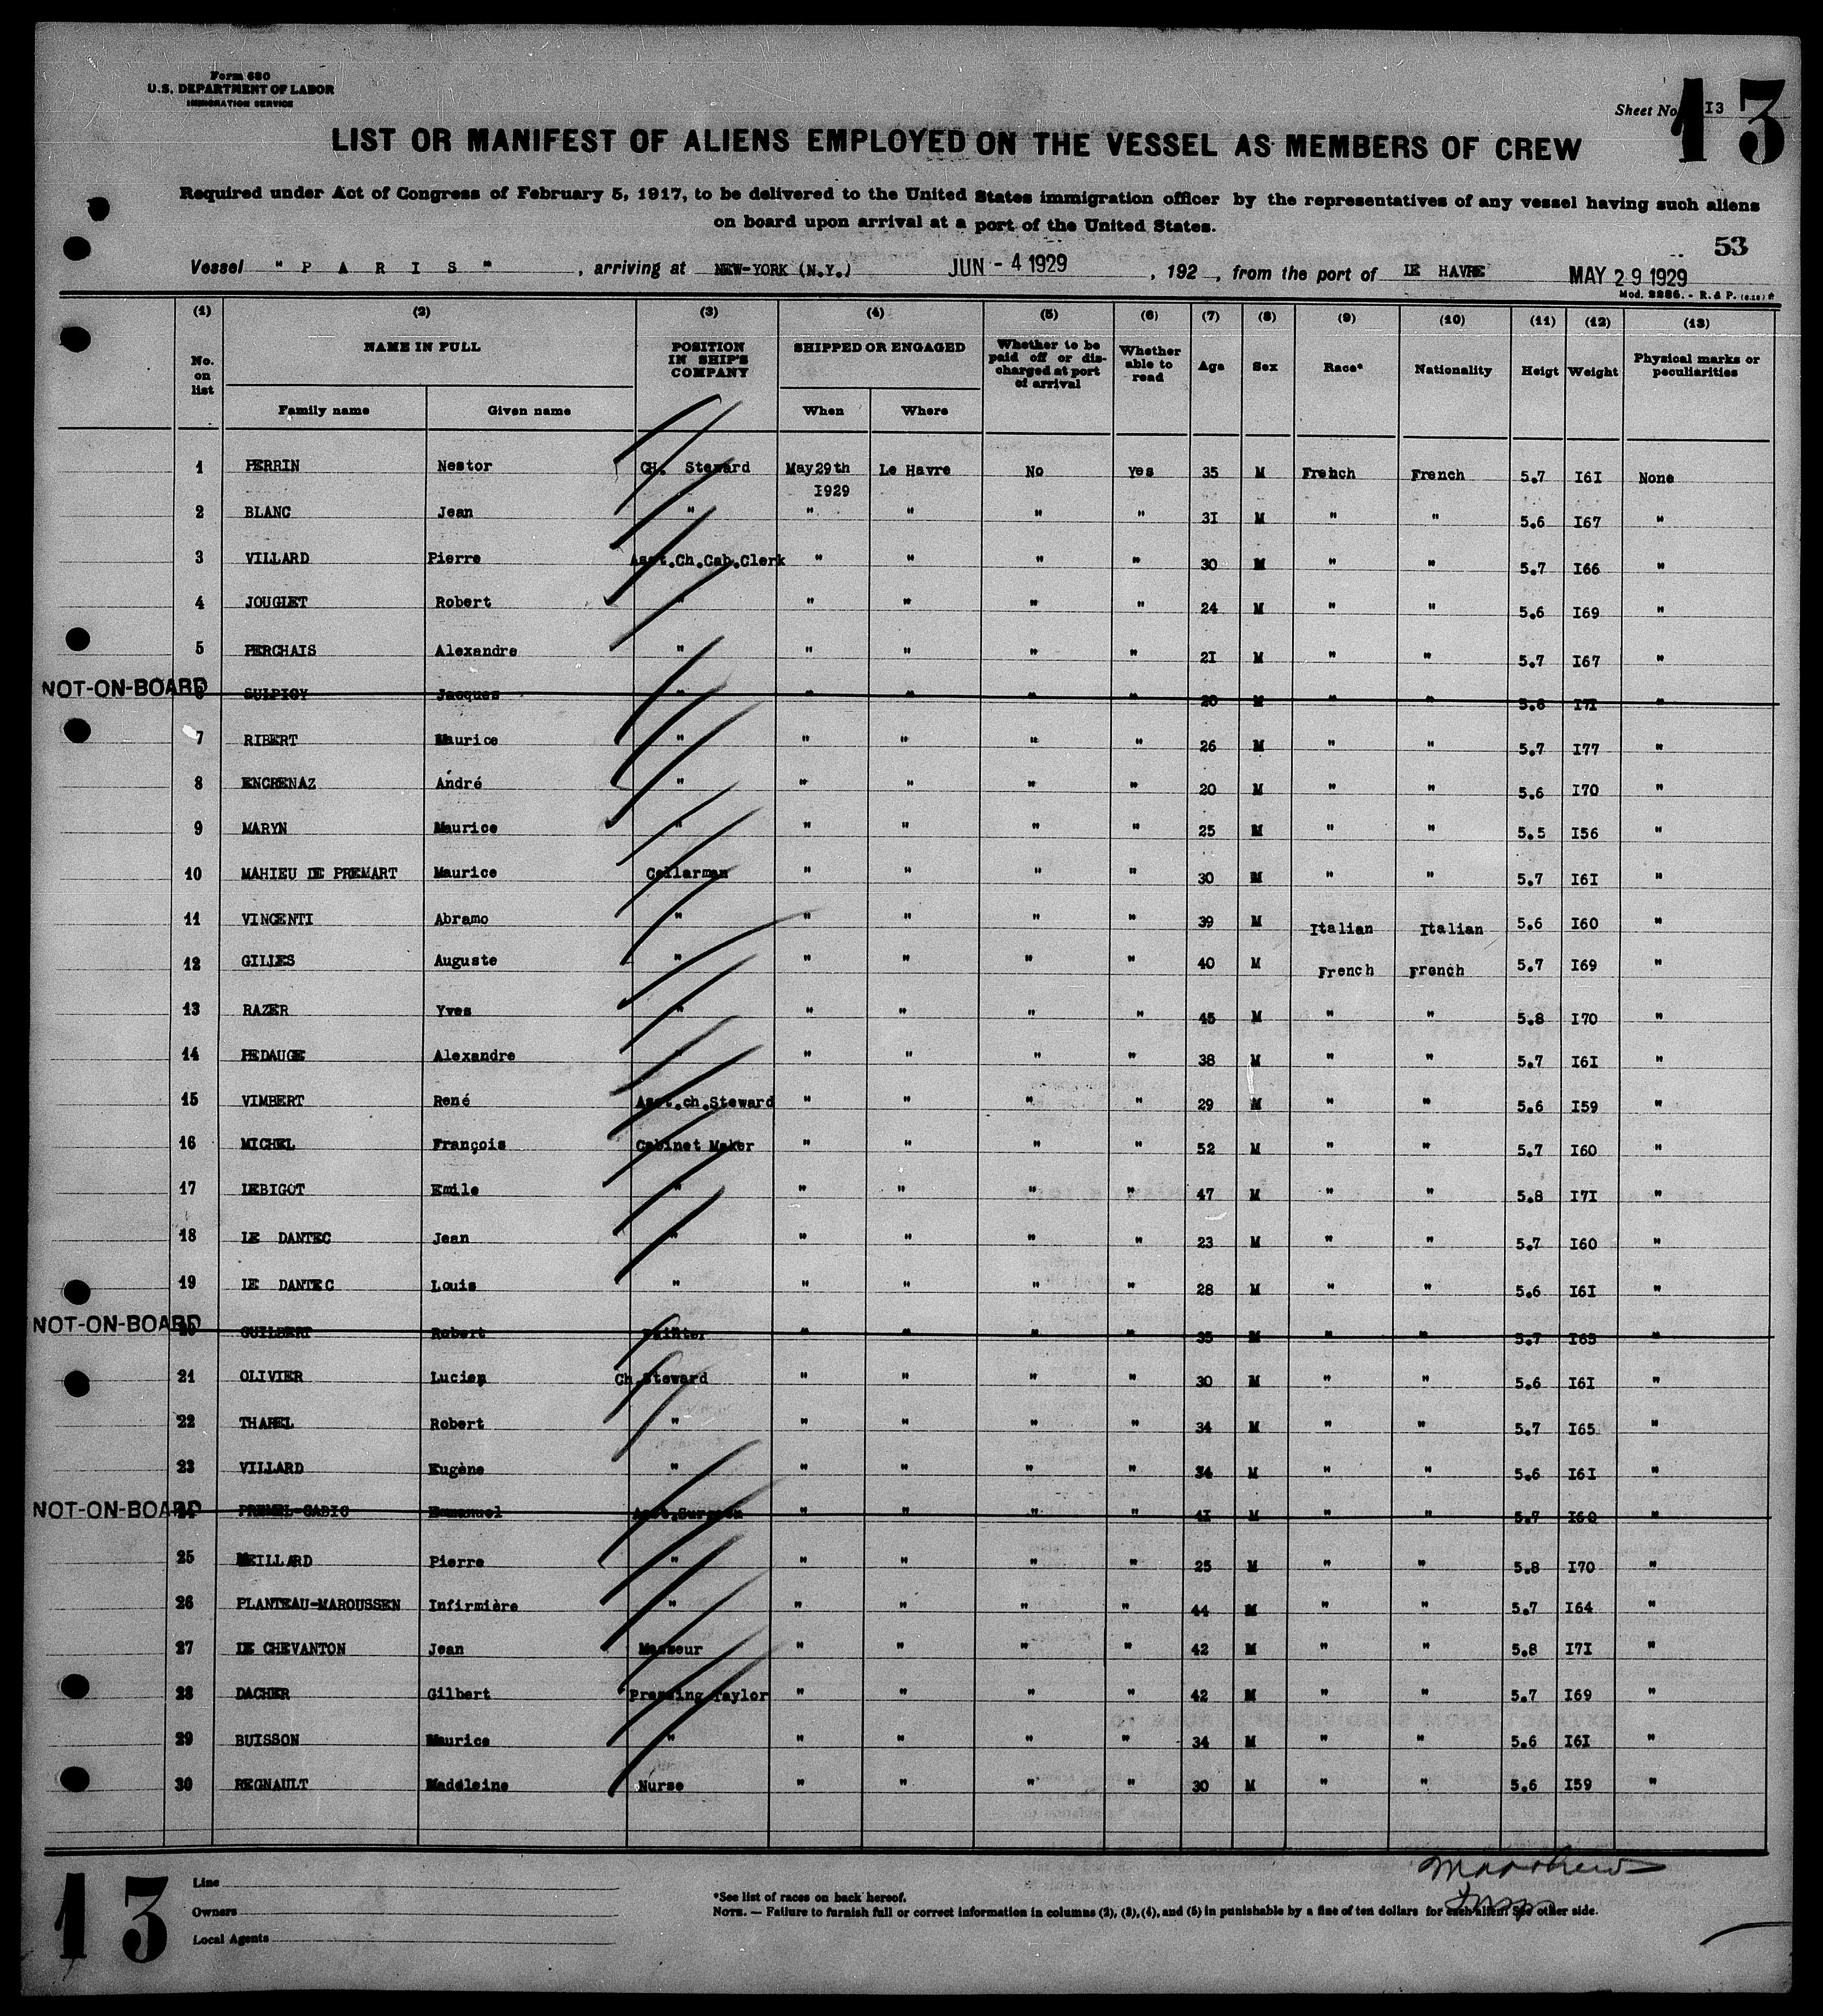 Form 680
U.S. DEPARTMENT OF LABOR
IMMIGRATION SERVICE
Sheet No. I3
13
LIST OR MANIFEST OF ALIENS EMPLOYED ON THE VESSEL AS MEMBERS OF CREW
Required under Act of Congress of February 5, 1917, to be delivered to the United States immigration officer by the representatives of any vessel having such aliens
on board upon arrival at a port of the United States.
53
Vessel " P A R I S " , arriving at NEW-YORK (N.Y.) JUN - 4 1929 , 192 , from the port of LE HAVRE MAY 29 1929
Mod. 2286. - R. & P.
(1) (2) (3) (4) (5) (6) (7) (8) (9) (10) (11) (12) (13)
No. on list NAME IN FULL POSITION IN SHIP'S COMPANY SHIPPED OR ENGAGED Whether to be paid off or discharged at port of arrival Whether able to read Age Sex Race* Nationality Heigt Weight Physical marks or peculiarities
Family name Given name When Where
1 PERRIN Nestor CH. Steward May 29th 1929 Le Havre No Yes 35 M French French 5.7 I6I None
2 BLANC Jean " " " " " 3I M " " 5.6 I67 "
3 VILLARD Pierre Asst.Ch.Cab.Clerk " " " " 30 M " " 5.7 I66 "
4 JOUGLET Robert " " " " " 24 M " " 5.6 I69 "
5 PERCHAIS Alexandre " " " " " 2I M " " 5.7 I67 "
NOT-ON-BOARD 6 SULPICY Jacques " " " " " 20 M " " 5.8 I7I "
7 RIBERT Maurice " " " " " 26 M " " 5.7 I77 "
8 ENCRENAZ André " " " " " 20 M " " 5.6 I70 "
9 MARYN Maurice " " " " " 25 M " " 5.5 I56 "
10 MAHIEU DE PREMART Maurice Cellarman " " " " 30 M " " 5.7 I6I "
11 VINCENTI Abramo " " " " " 39 M Italian Italian 5.6 I60 "
12 GILLES Auguste " " " " " 40 M French French 5.7 I69 "
13 RAZER Yves " " " " " 45 M " " 5.8 I70 "
14 PEDAUGE Alexandre " " " " " 38 M " " 5.7 I6I "
15 VIMBERT René Asst.ch.Steward " " " " 29 M " " 5.6 I59 "
16 MICHEL François Cabinet Maker " " " " 52 M " " 5.7 I60 "
17 LEBIGOT Emile " " " " " 47 M " " 5.8 I7I "
18 LE DANTEC Jean " " " " " 23 M " " 5.7 I60 "
19 LE DANTEC Louis " " " " " 28 M " " 5.6 I6I "
NOT-ON-BOARD 20 GUILBERT Robert Painter " " " " 35 M " " 5.7 I65 "
21 OLIVIER Lucien Ch.Steward " " " " 30 M " " 5.6 I6I "
22 THAREL Robert " " " " " 34 M " " 5.7 I65 "
23 VILLARD Eugène " " " " " 34 M " " 5.6 I6I "
NOT-ON-BOARD 24 PREMEL-CABIC Emmanuel Asst.Surgeon " " " " 4I M " " 5.7 I60 "
25 MEILLARD Pierre " " " " " 25 M " " 5.8 I70 "
26 PLANTEAU-MAROUSSEN Infirmière " " " " " 44 M " " 5.7 I64 "
27 DE CHEVANTON Jean Masseur " " " " 42 M " " 5.8 I7I "
28 DACHER Gilbert Pressing Taylor " " " " 42 M " " 5.7 I69 "
29 BUISSON Maurice " " " " " 34 M " " 5.6 I6I "
30 REGNAULT Madeleine Nurse " " " " 30 M " " 5.6 I59 "
13
Line
Owners
Local Agents
*See list of races on back hereof.
NOTE. — Failure to furnish full or correct information in columns (2), (3), (4), and (5) in punishable by a fine of ten dollars for each alien. See other side.